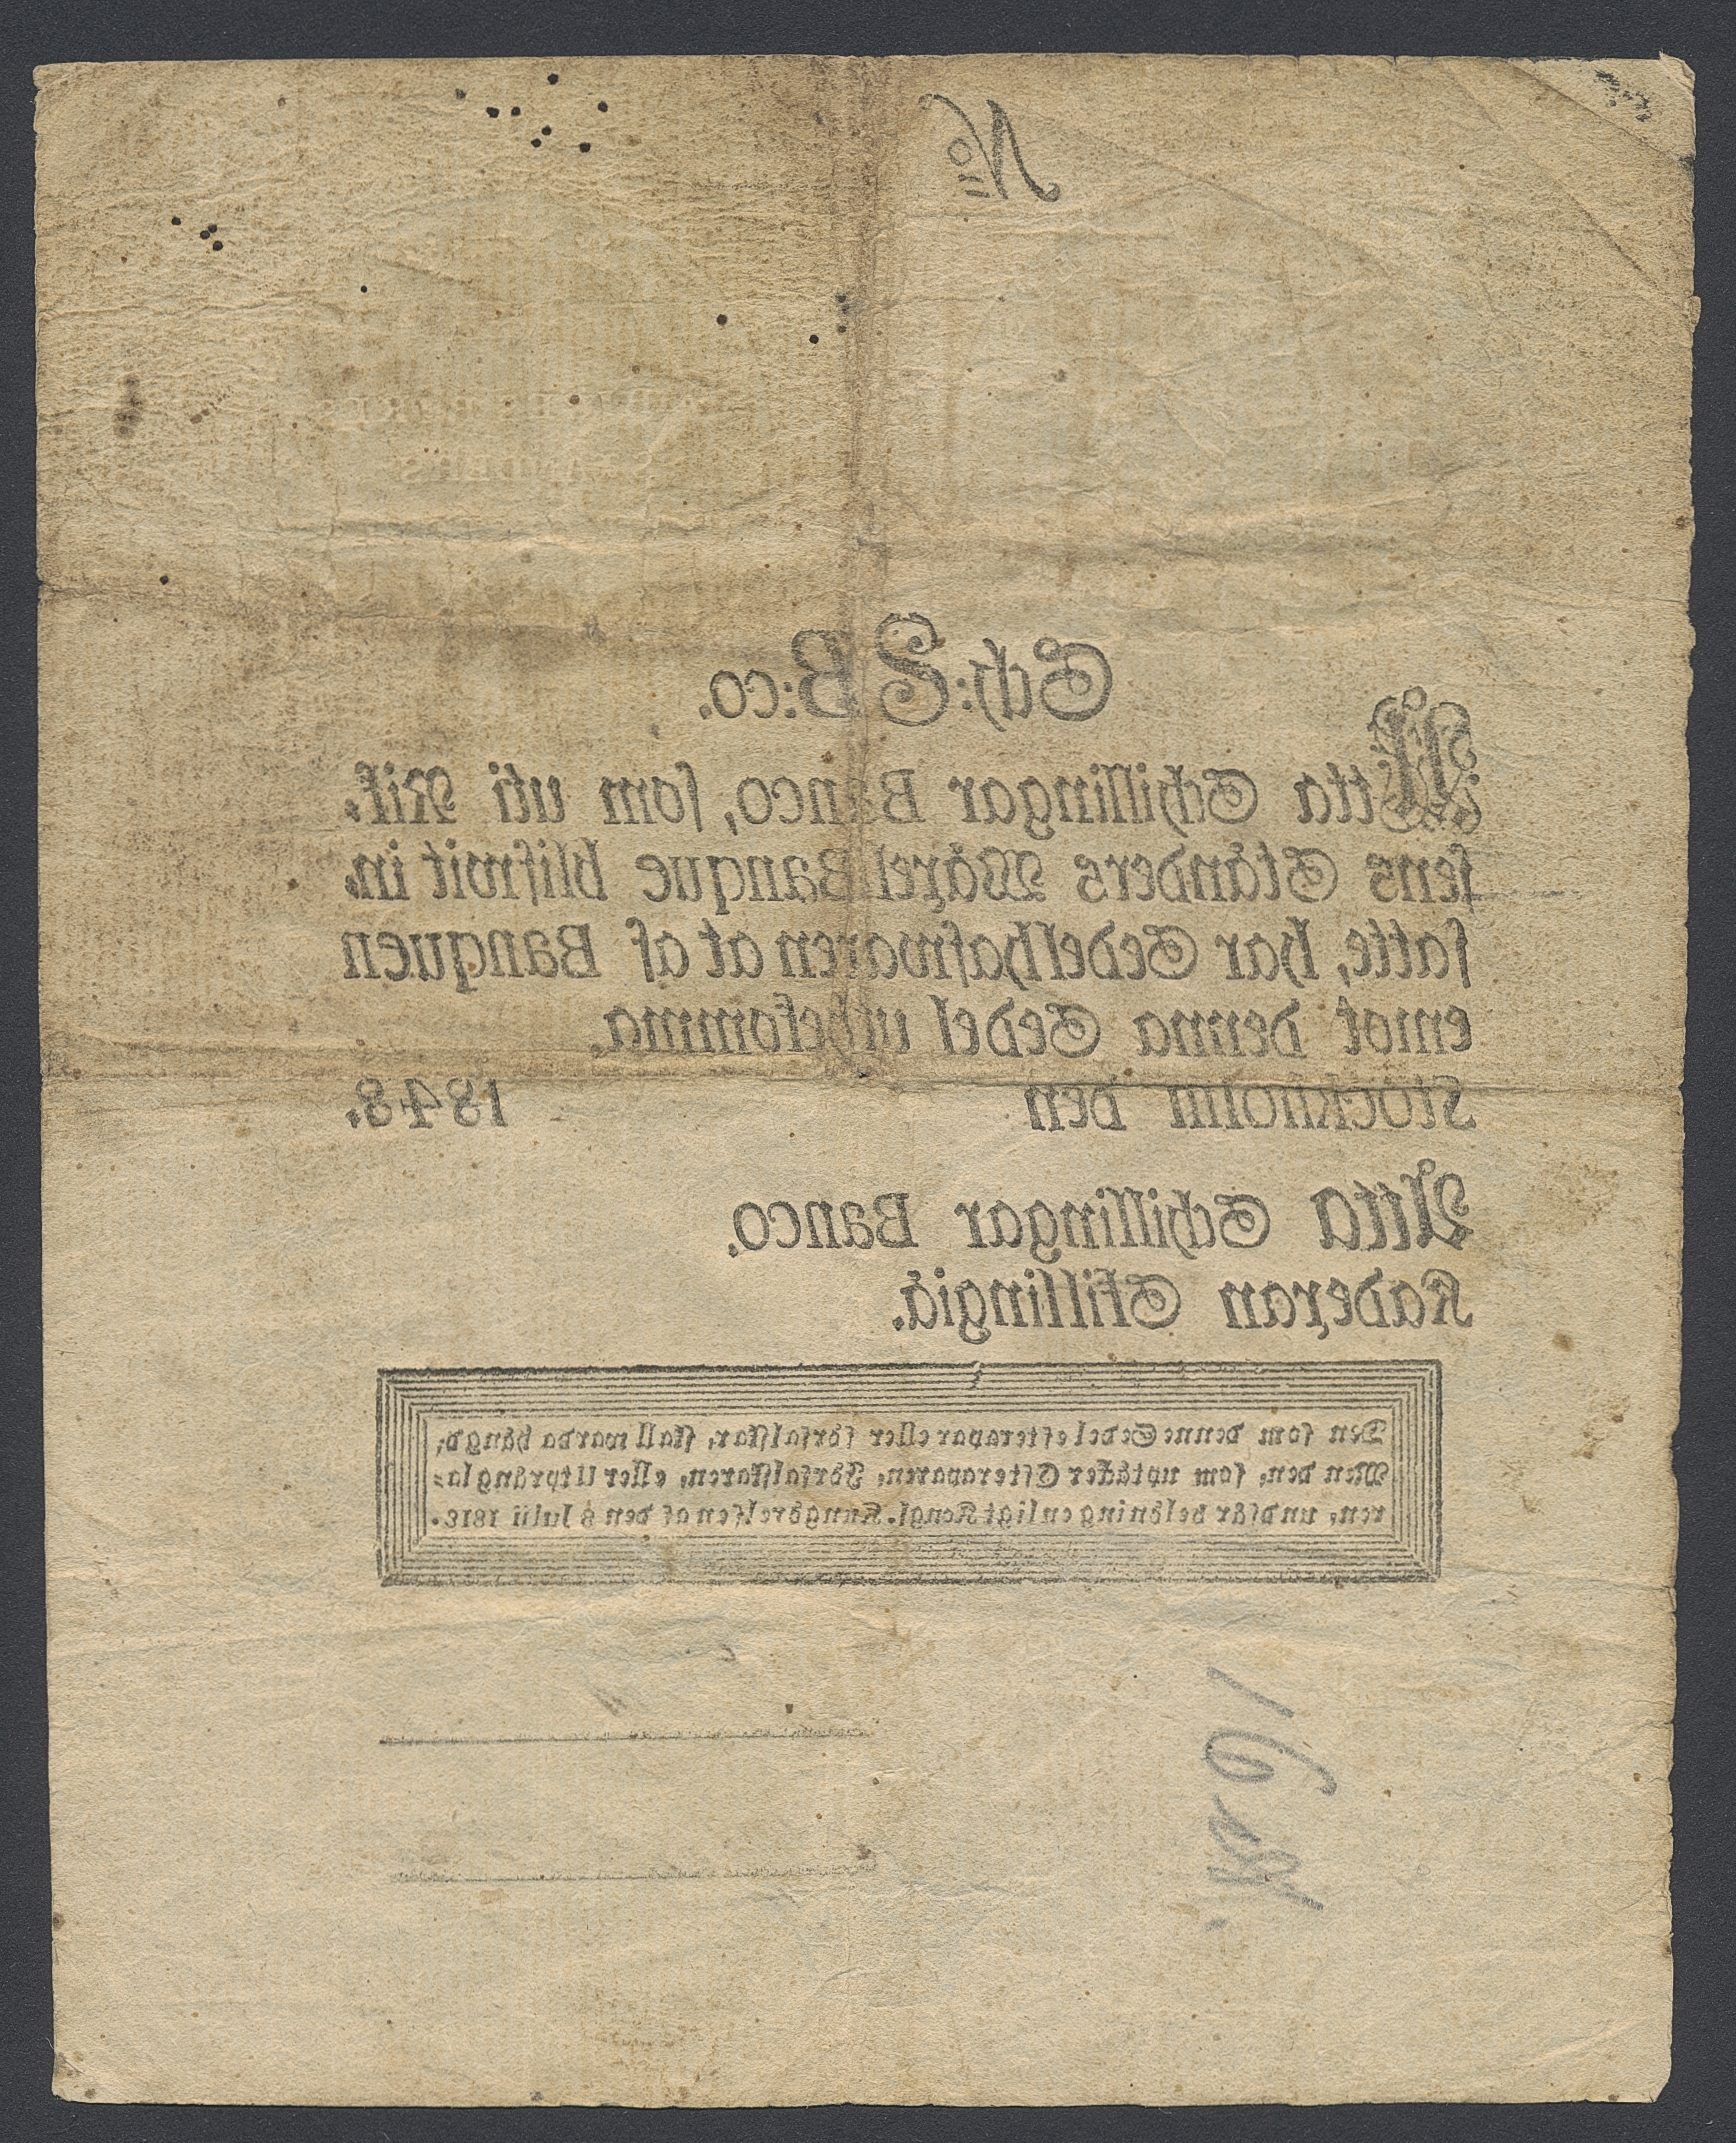 No
Sch: 8 B:co.
Åtta Schillingar Banco, som uti Rik-
sens Ständers Wäxel-Banque blifwit in-
satte, har Sedelhafwaren at af Banquen
emot denna Sedel utbekomma.
Stockholm den 1848.
Åtta Schillingar Banco.
Kadexan Skillingiä.
Den som denne Sedel efterapar eller förfalskar, skall warda hängd;
Men den, som uptäcker Efteraparen, Förfalskaren, eller Utprångla-
ren, undfår belöning enligt Kongl. Kungörelsen af den 8 Julii 1818.